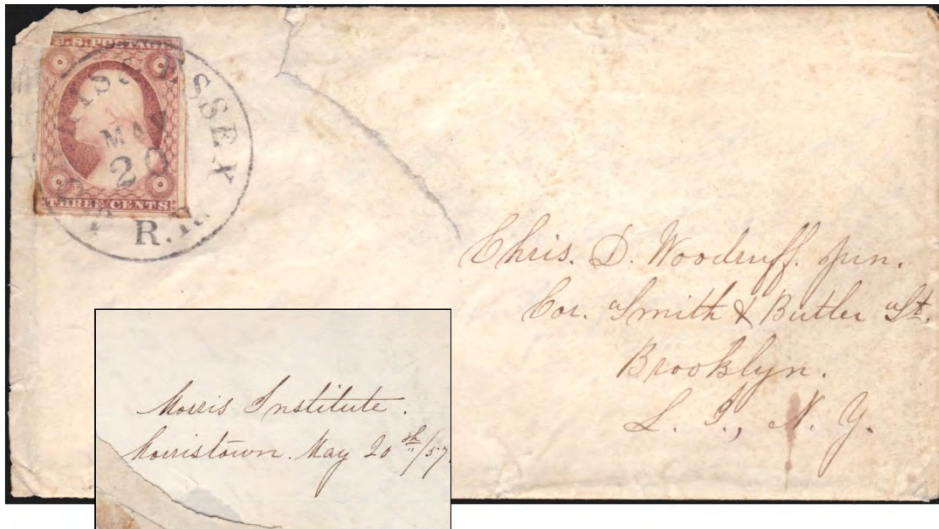 U.S. POSTAGE
THREE CENTS
ESSEX
MAY
20
R.R.
Chris. D. Woodruff. Jun.
Cor. Smith & Butler St.
Brooklyn.
L. I., N. Y.
Morris Institute.
Morristown. May 20th/57.